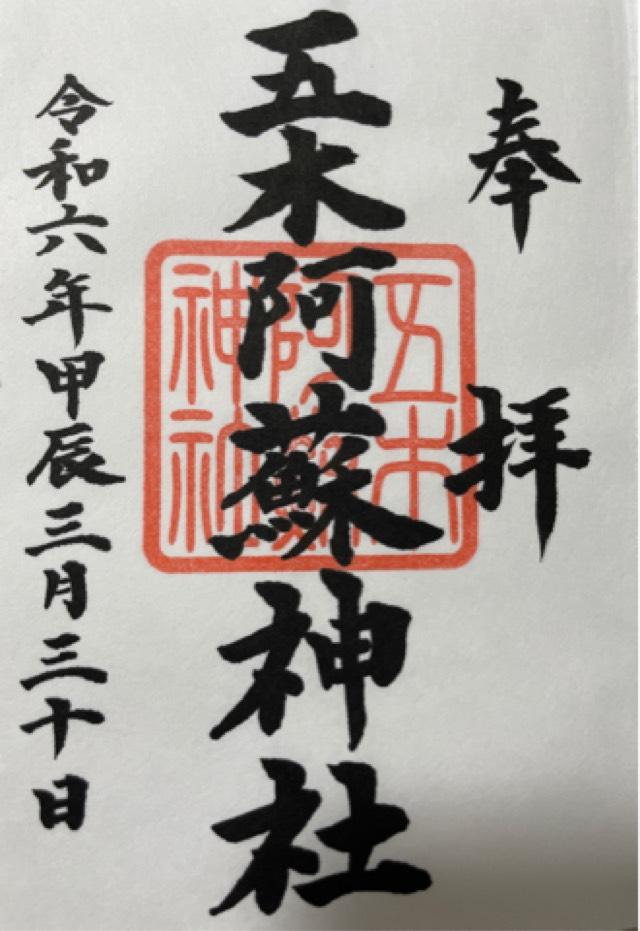 奉拝
五木阿蘇神社
五木
阿蘇
神社
令和六年甲辰三月三十日